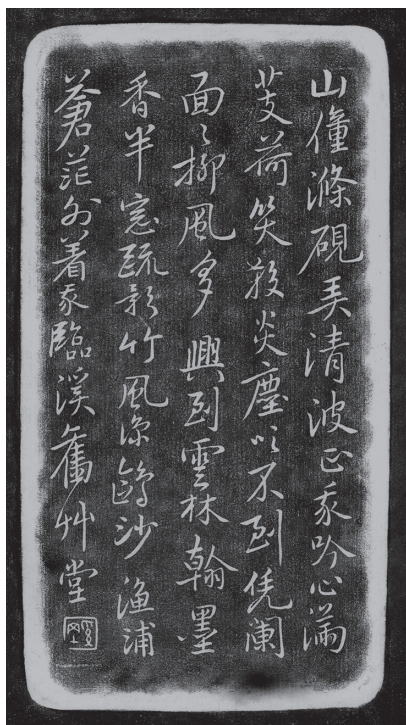 山僮滌硯弄清波正我吟心滿
芰荷笑殺炎塵吹不到凭闌
面〻柳風多興到雲林翰墨
香半窓疏影竹風凉鷗沙漁浦
蒼茫外着我臨溪舊艸堂